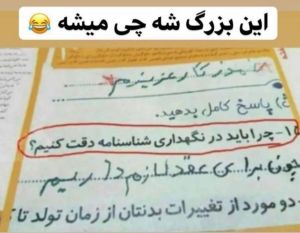 این بزرگ شه چی میشه 😂
پاسخ کامل بدهید.
۱- چرا باید در نگهداری شناسنامه دقت کنیم؟
چون برای عقد لازم داریم
دو مورد از تغییرات بدنتان از زمان تولد تا